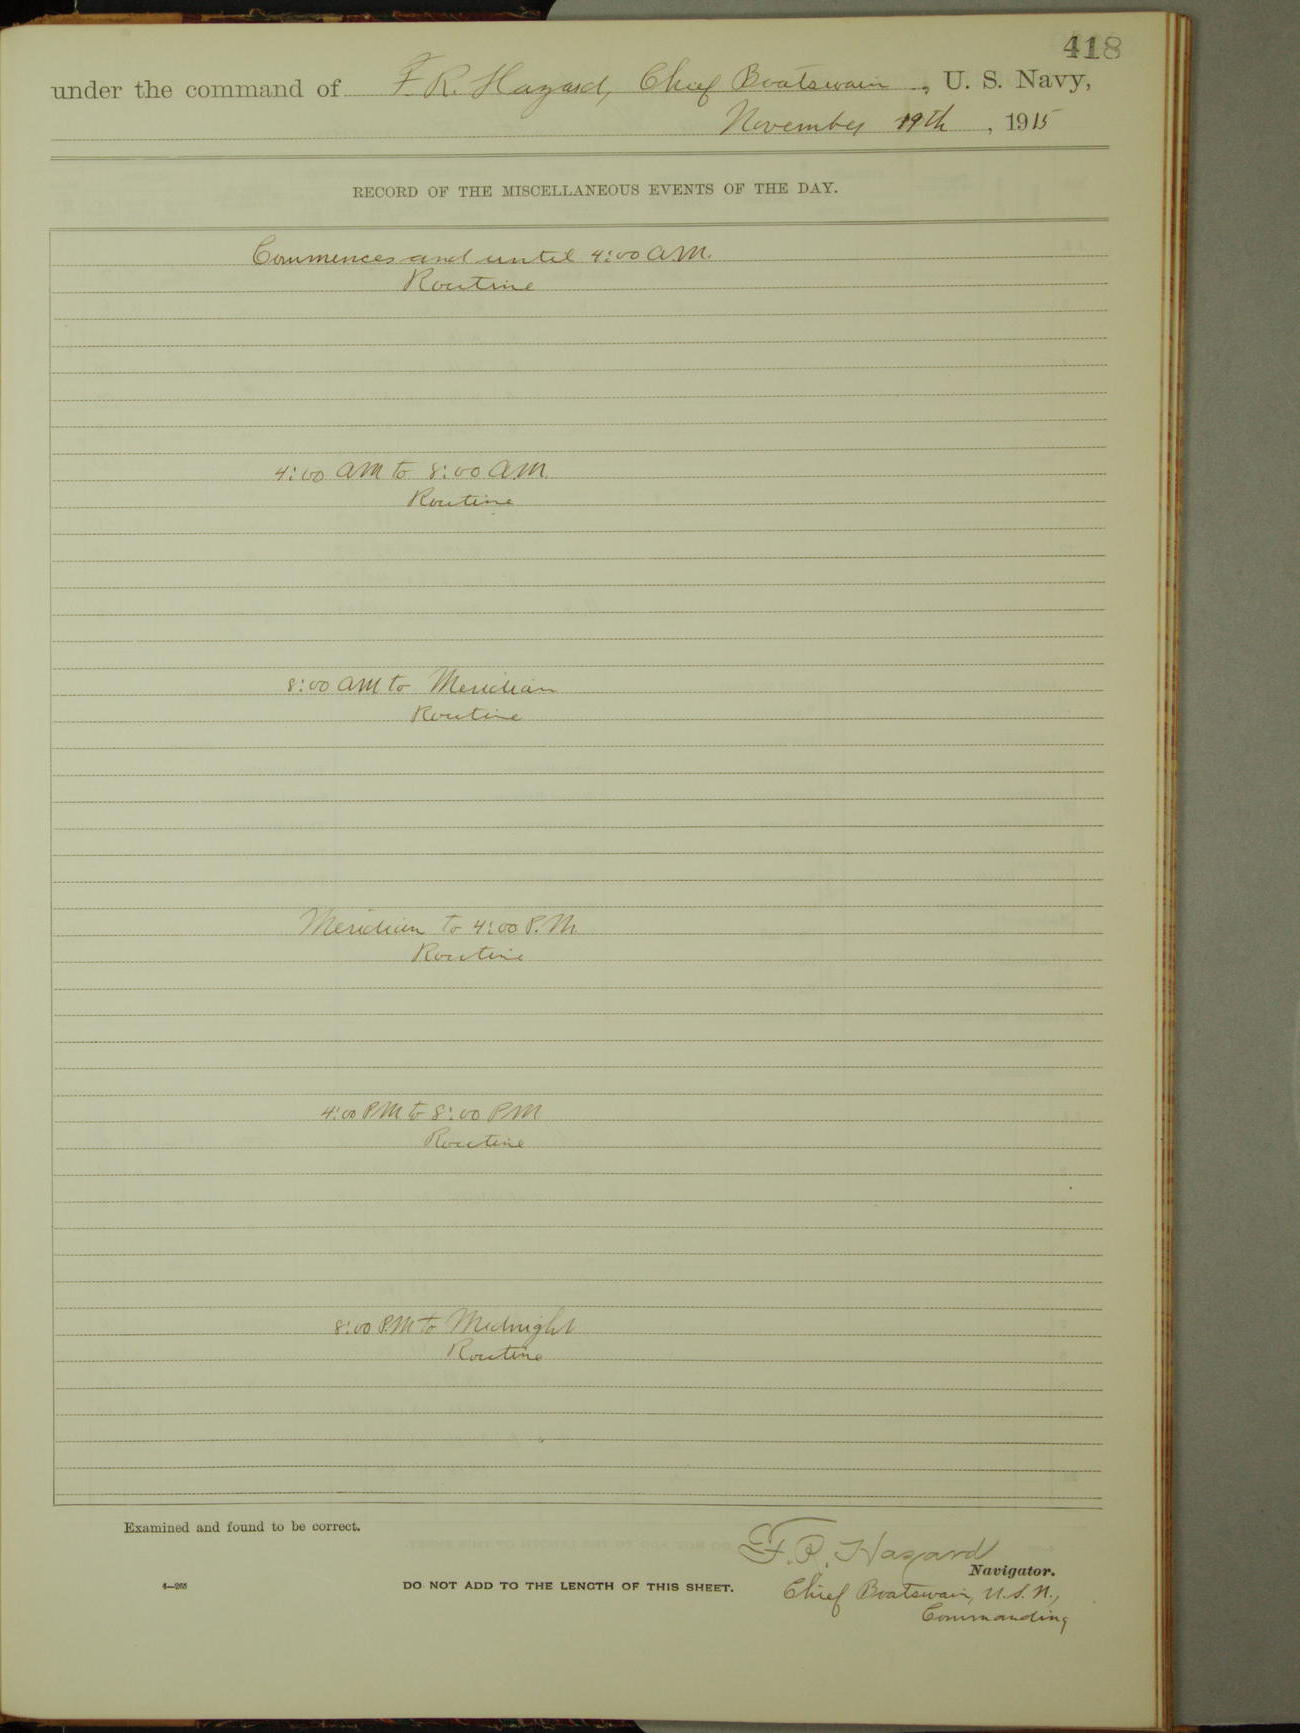 418
under the command of F. R. Hazard, Chief Boatswain, U. S. Navy,
November 19th, 1915
RECORD OF THE MISCELLANEOUS EVENTS OF THE DAY.
Commences and until 4:00 AM.
Routine
4:00 AM to 8:00 AM.
Routine
8:00 AM to Meridian
Routine
Meridian to 4:00 P.M.
Routine
4:00 PM to 8:00 PM
Routine
8:00 P.M to Midnight
Routine
Examined and found to be correct.
F. R. Hazard
Navigator.
4—265
DO NOT ADD TO THE LENGTH OF THIS SHEET.
Chief Boatswain, U.S.N.,
Commanding